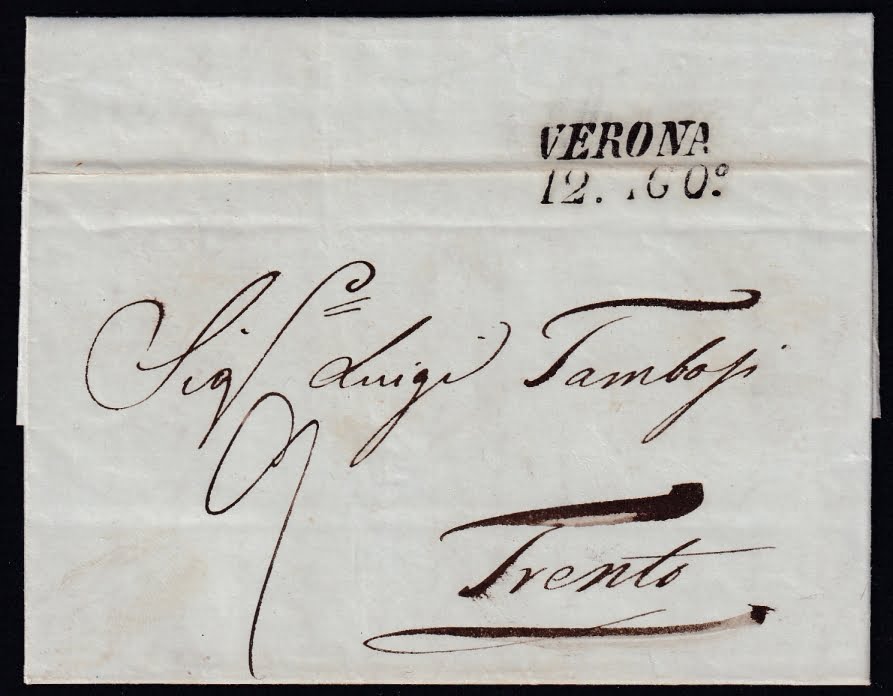 VERONA
12. AGO.º
Sig.r Luigi Tambosi
9
Trento